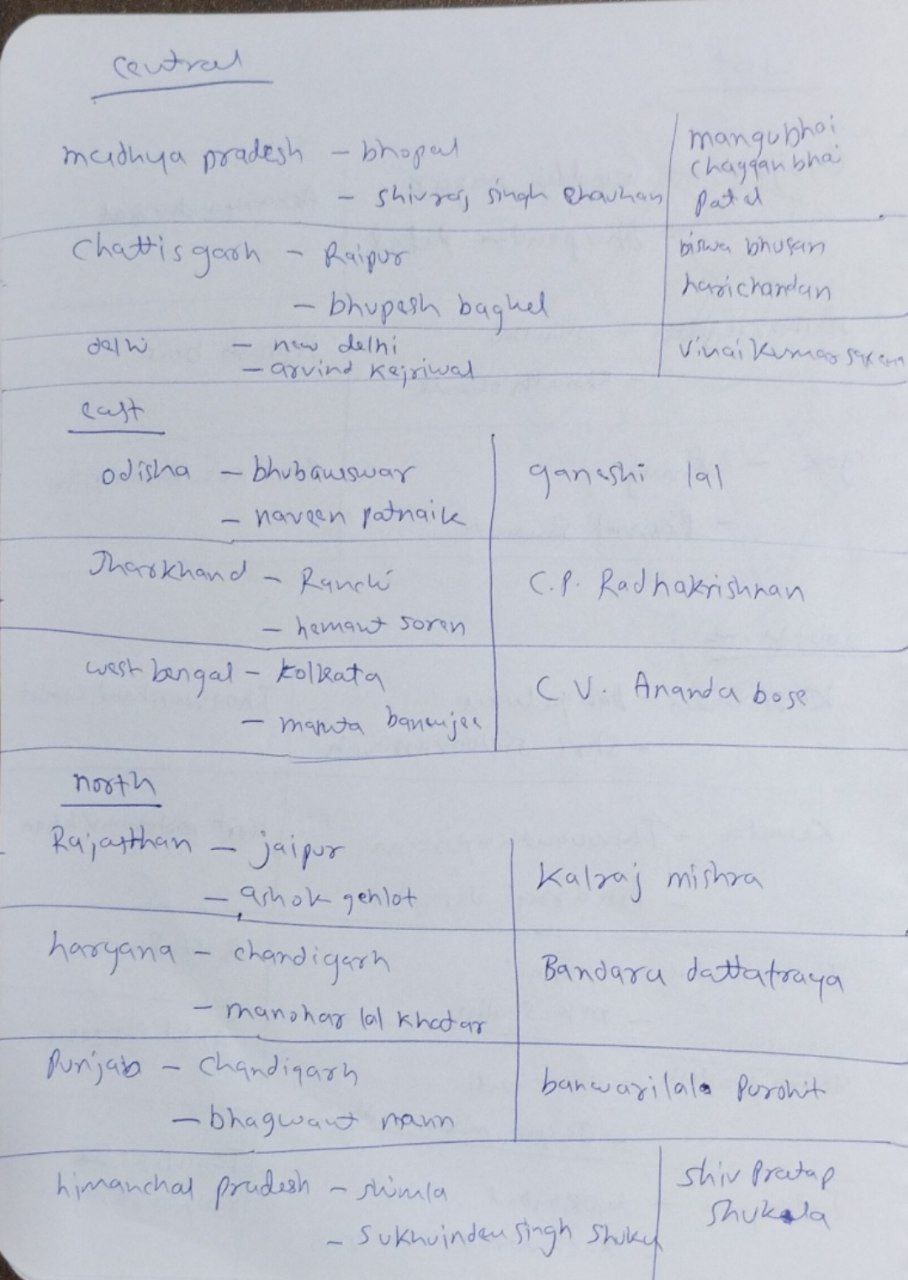 central
madhya pradesh - bhopal
- shivraj singh chauhan
mangubhai
chaggan bhai
patel
Chattisgarh - Raipur
- bhupesh baghel
biswa bhusan
harichandan
delhi - new delhi
- arvind kejriwal
Vinai Kumar saxena
east
odisha - bhubaneswar
- naveen patnaik
ganeshi lal
Jharkhand - Ranchi
- hemant soren
C.P. Radhakrishnan
west bengal - Kolkata
- mamta banerjee
C V. Ananda bose
north
Rajasthan - jaipur
- ashok gehlot
Kalraj mishra
haryana - chandigarh
- manohar lal khatar
Bandaru dattatraya
Punjab - Chandigarh
- bhagwant mann
banwarilal Purohit
himanchal pradesh - shimla
- Sukhvinder singh Shuku
Shiv Pratap
Shukla